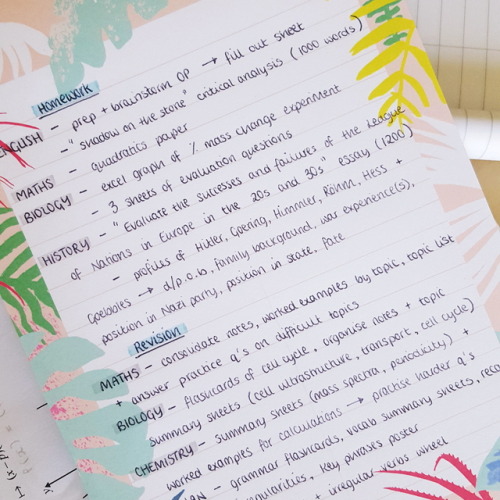 Homework
ENGLISH - prep + brainstorm OP → fill out sheet
- "shadow on the stone" critical analysis (1000 words)
MATHS - quadratics paper
BIOLOGY - excel graph of % mass change experiment
- 3 sheets of evaluation questions
HISTORY - "Evaluate the successes and failures of the League
of Nations in Europe in the 20s and 30s" essay (1200)
- profiles of Hitler, Goering, Himmler, Röhm, Hess +
Goebbles → d/p.o.b, family background, war experience(s),
position in Nazi party, position in state, fate
Revision
MATHS - consolidate notes, worked examples by topic, topic list
+ answer practice q's on difficult topics
BIOLOGY - flashcards of cell cycle, organise notes + topic
summary sheets (cell ultrastructure, transport, cell cycle)
CHEMISTRY - summary sheets (mass spectra, periodicity) +
worked examples for calculations → practise harder q's
- grammar flashcards, vocab summary sheets,
key phrases poster
irregular verbs wheel